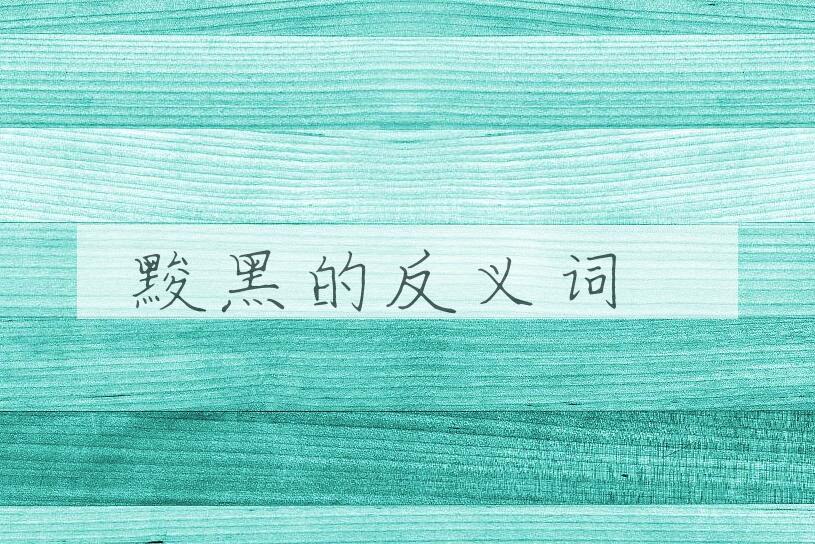 黢黑的反义词